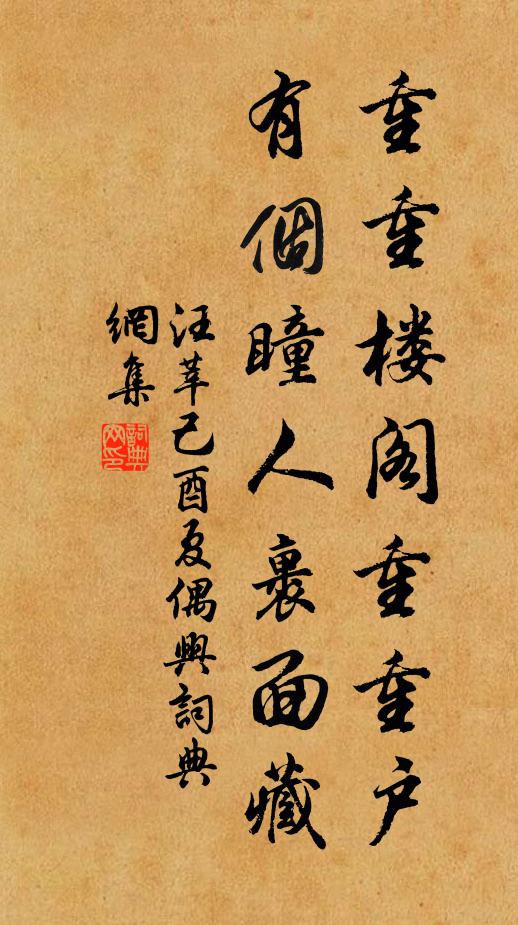 重重楼阁重重户
有個瞳人裏面藏
汪莘己酉夏偶興詞典
網集
詞典
网印